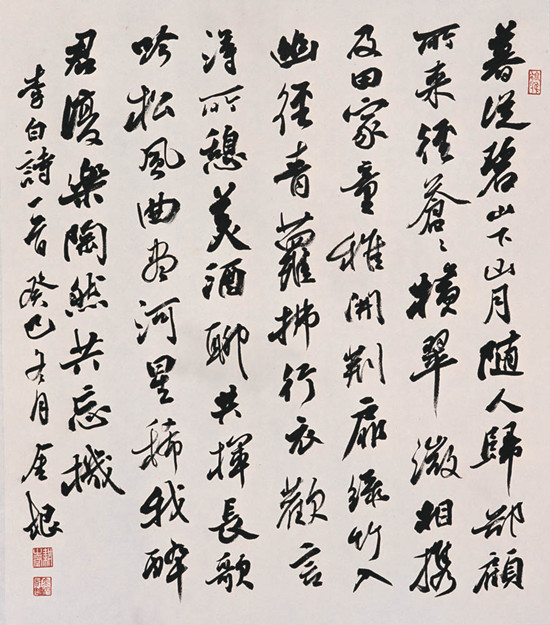 暮從碧山下山月隨人歸却顧
所來徑蒼〻橫翠微相攜
及田家童稚開荆扉綠竹入
幽徑青蘿拂行衣歡言
得所憩美酒聊共揮長歌
吟松風曲盡河星稀我醉
君復樂陶然共忘機
李白詩一首癸巳冬月金